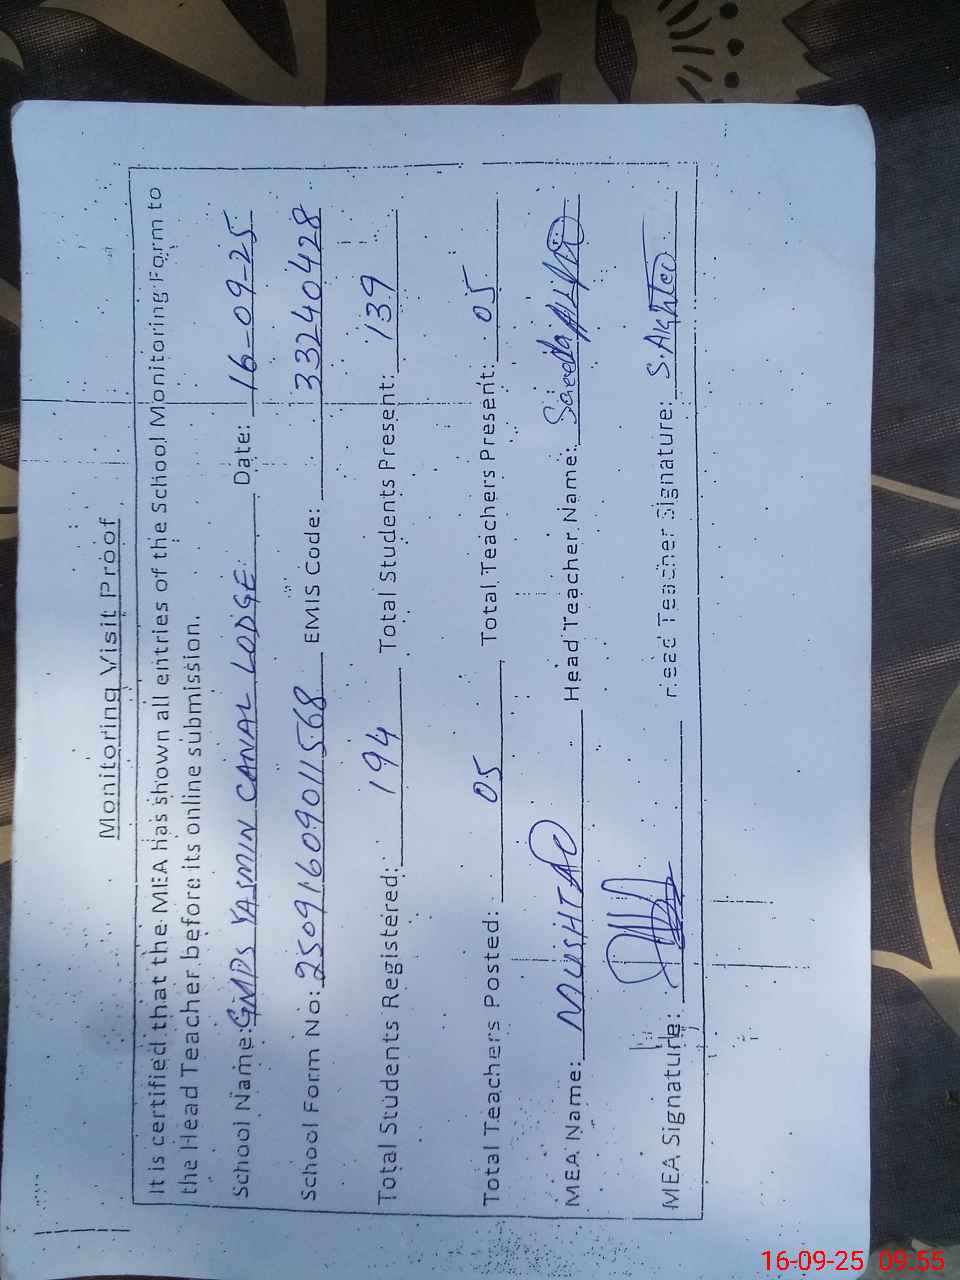 Monitoring Visit Proof
It is certified that the MEA has shown all entries of the School Monitoring Form to
the Head Teacher before its online submission.
School Name: GMPS YASMIN CANAL LODGE Date: 16-09-25
School Form No: 25091609011568 EMIS Code: 33240428
Total Students Registered: 194 Total Students Present: 139
Total Teachers Posted: 05 Total Teachers Present: 05
MEA Name: MUSHTAQ Head Teacher Name: Saeeda
MEA Signature: Head Teacher Signature: S.Aghter
16-09-25 09:55